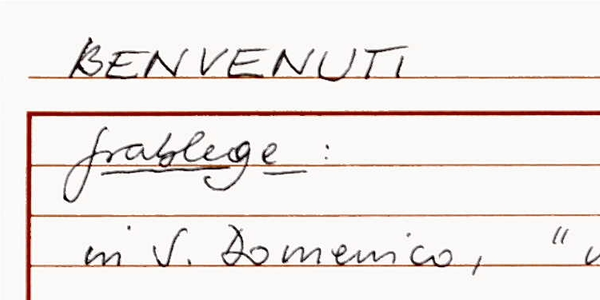 BENVENUTI
Grablege :
in S. Domenico, "